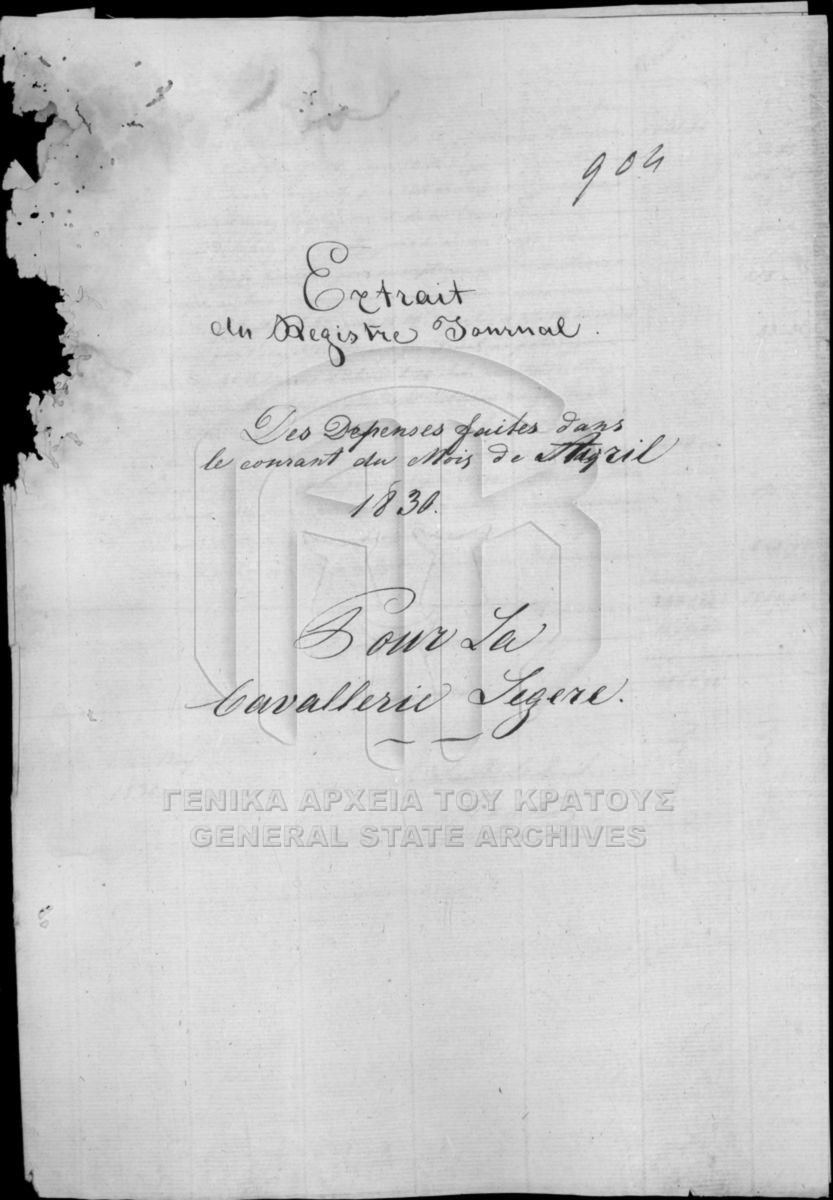 904
Extrait
du Registre Journal.
Des Depenses faites dans
le courant du Mois de Avril
1830.
Pour La
Cavallerie Legere.
ΓΕΝΙΚΑ ΑΡΧΕΙΑ ΤΟΥ ΚΡΑΤΟΥΣ
GENERAL STATE ARCHIVES